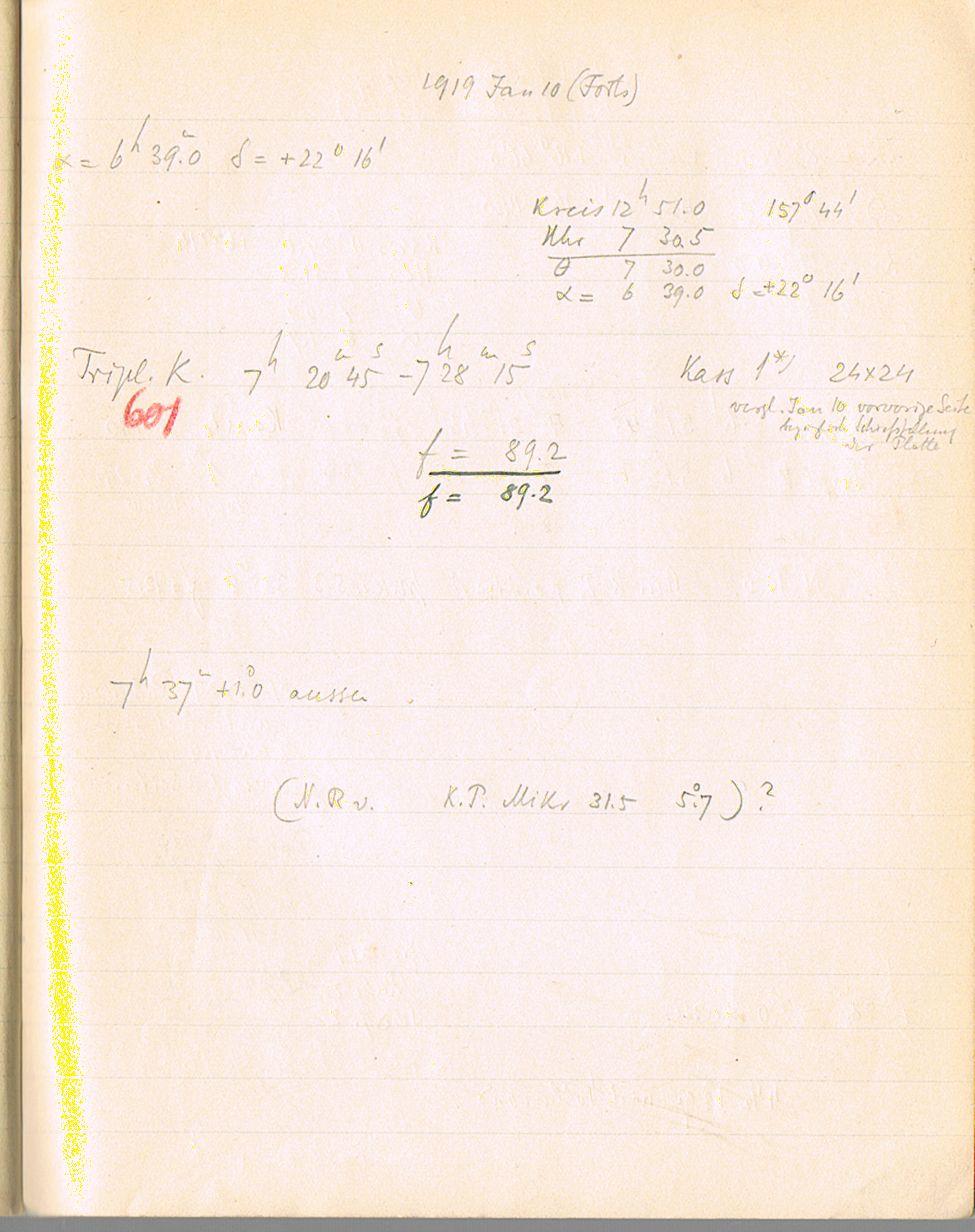 1919 Jan 10 (Forts)
α = 6h 39.m0 δ = +22° 16'
Kreis 12h 51.0 157° 44'
Uhr 7 30.5
θ 7 30.0
α = 6 39.0 δ = +22° 16'
Tripl. K. 7h 20m 45s – 7h 28m 15s Kass 1*) 24×24
601
vergl. Jan 10 vorvorige Seite
der Platte
f = 89.2
f = 89.2
7h 37m +1.°0 aussen
(N.R v. K.P. Mikr 31.5 5.°7) ?